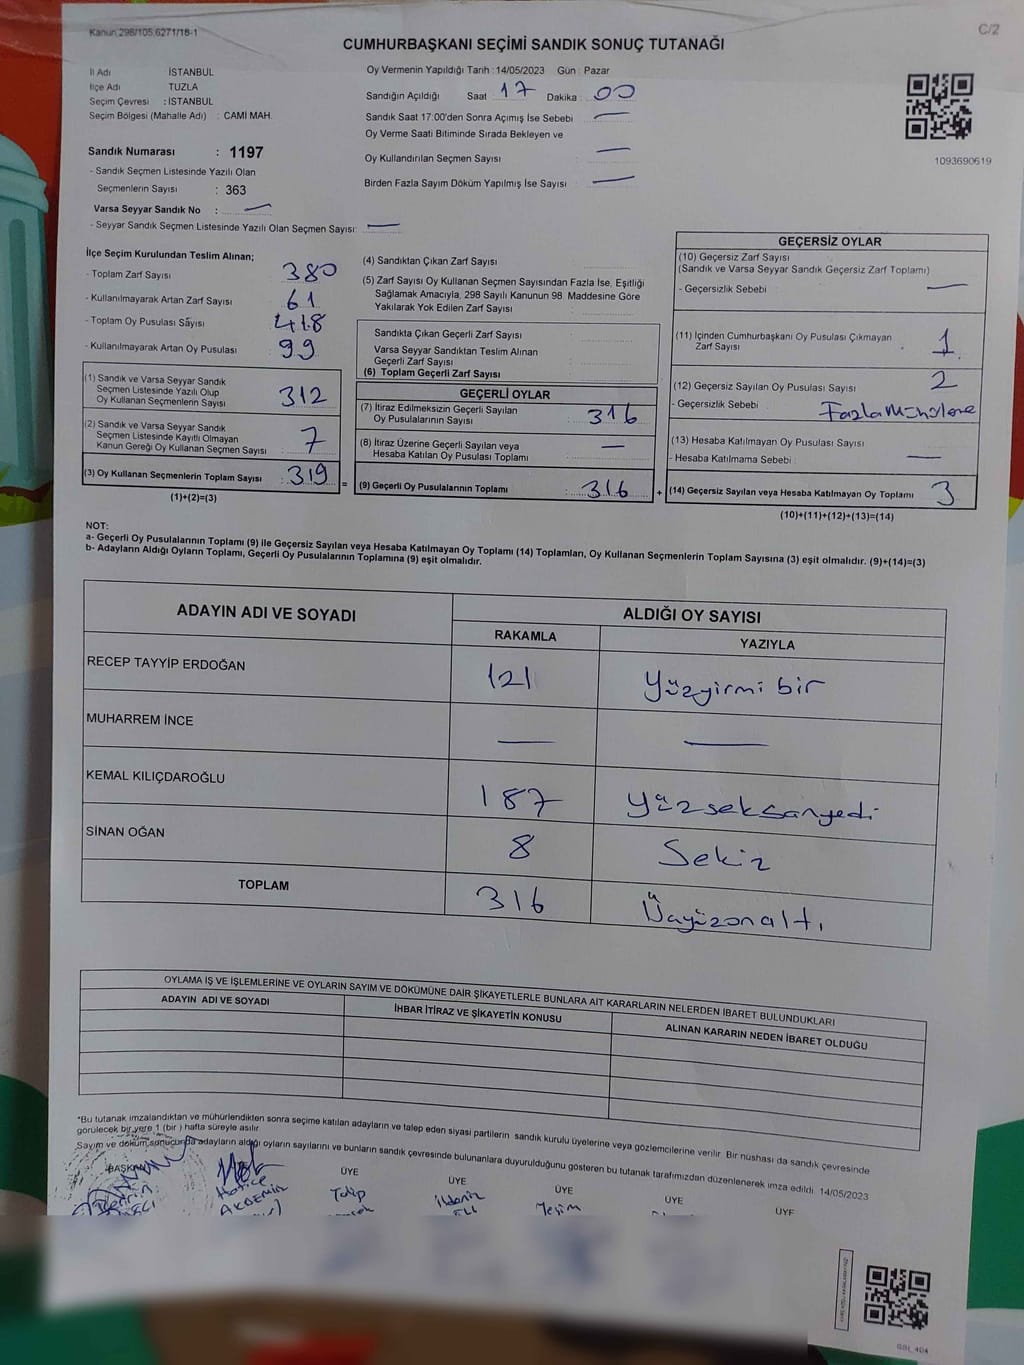 Kanun 298/105,6271/18-1
C/2
CUMHURBAŞKANI SEÇİMİ SANDIK SONUÇ TUTANAĞI
İl Adı İSTANBUL
İlçe Adı TUZLA
Seçim Çevresi : İSTANBUL
Seçim Bölgesi (Mahalle Adı) : CAMİ MAH.
Sandık Numarası : 1197
- Sandık Seçmen Listesinde Yazılı Olan
Seçmenlerin Sayısı : 363
Varsa Seyyar Sandık No : —
- Seyyar Sandık Seçmen Listesinde Yazılı Olan Seçmen Sayısı: —
Oy Vermenin Yapıldığı Tarih : 14/05/2023 Gün : Pazar
Sandığın Açıldığı Saat 17 Dakika : 00
Sandık Saat 17:00'den Sonra Açımış İse Sebebi —
Oy Verme Saati Bitiminde Sırada Bekleyen ve
Oy Kullandırılan Seçmen Sayısı —
Birden Fazla Sayım Döküm Yapılmış İse Sayısı : —
1093690619
İlçe Seçim Kurulundan Teslim Alınan;
- Toplam Zarf Sayısı 380
- Kullanılmayarak Artan Zarf Sayısı 61
- Toplam Oy Pusulası Sayısı 418
- Kullanılmayarak Artan Oy Pusulası 99
(1) Sandık ve Varsa Seyyar Sandık
Seçmen Listesinde Yazılı Olup
Oy Kullanan Seçmenlerin Sayısı 312
(2) Sandık ve Varsa Seyyar Sandık
Seçmen Listesinde Kayıtlı Olmayan
Kanun Gereği Oy Kullanan Seçmen Sayısı 7
(3) Oy Kullanan Seçmenlerin Toplam Sayısı : 319 =
(1)+(2)=(3)
(4) Sandıktan Çıkan Zarf Sayısı
(5) Zarf Sayısı Oy Kullanan Seçmen Sayısından Fazla İse, Eşitliği
Sağlamak Amacıyla, 298 Sayılı Kanunun 98 Maddesine Göre
Yakılarak Yok Edilen Zarf Sayısı
Sandıkta Çıkan Geçerli Zarf Sayısı
Varsa Seyyar Sandıktan Teslim Alınan
Geçerli Zarf Sayısı
(6) Toplam Geçerli Zarf Sayısı
GEÇERLİ OYLAR
(7) İtiraz Edilmeksizin Geçerli Sayılan
Oy Pusulalarının Sayısı 316
(8) İtiraz Üzerine Geçerli Sayılan veya
Hesaba Katılan Oy Pusulası Toplamı —
(9) Geçerli Oy Pusulalarının Toplamı : 316 +
GEÇERSİZ OYLAR
(10) Geçersiz Zarf Sayısı
(Sandık ve Varsa Seyyar Sandık Geçersiz Zarf Toplamı)
- Geçersizlik Sebebi —
(11) İçinden Cumhurbaşkanı Oy Pusulası Çıkmayan
Zarf Sayısı 1
(12) Geçersiz Sayılan Oy Pusulası Sayısı 2
- Geçersizlik Sebebi : Fazla Mühürleme
(13) Hesaba Katılmayan Oy Pusulası Sayısı
- Hesaba Katılmama Sebebi —
(14) Geçersiz Sayılan veya Hesaba Katılmayan Oy Toplamı 3
(10)+(11)+(12)+(13)=(14)
NOT:
a- Geçerli Oy Pusulalarının Toplamı (9) ile Geçersiz Sayılan veya Hesaba Katılmayan Oy Toplamı (14) Toplamları, Oy Kullanan Seçmenlerin Toplam Sayısına (3) eşit olmalıdır. (9)+(14)=(3)
b- Adayların Aldığı Oyların Toplamı, Geçerli Oy Pusulalarının Toplamına (9) eşit olmalıdır.
ADAYIN ADI VE SOYADI ALDIĞI OY SAYISI
RAKAMLA YAZIYLA
RECEP TAYYİP ERDOĞAN 121 Yüzyirmi bir
MUHARREM İNCE — —
KEMAL KILIÇDAROĞLU 187 Yüzseksanyedi
SİNAN OĞAN 8 Sekiz
TOPLAM 316 Üçyüzonaltı
OYLAMA İŞ VE İŞLEMLERİNE VE OYLARIN SAYIM VE DÖKÜMÜNE DAİR ŞİKAYETLERLE BUNLARA AİT KARARLARIN NELERDEN İBARET BULUNDUKLARI
ADAYIN ADI VE SOYADI İHBAR İTİRAZ VE ŞİKAYETİN KONUSU ALINAN KARARIN NEDEN İBARET OLDUĞU
*Bu tutanak imzalandıktan ve mühürlendikten sonra seçime katılan adayların ve talep eden siyasi partilerin sandık kurulu üyelerine veya gözlemcilerine verilir. Bir nüshası da sandık çevresinde
görülecek bir yere 1 (bir) hafta süreyle asılır.
Sayım ve döküm sonucunda adayların aldığı oyların sayılarını ve bunların sandık çevresinde bulunanlara duyurulduğunu gösteren bu tutanak tarafımızdan düzenlenerek imza edildi. 14/05/2023
BAŞKAN ÜYE ÜYE ÜYE ÜYE ÜYE
Hatice
AKDEMİR